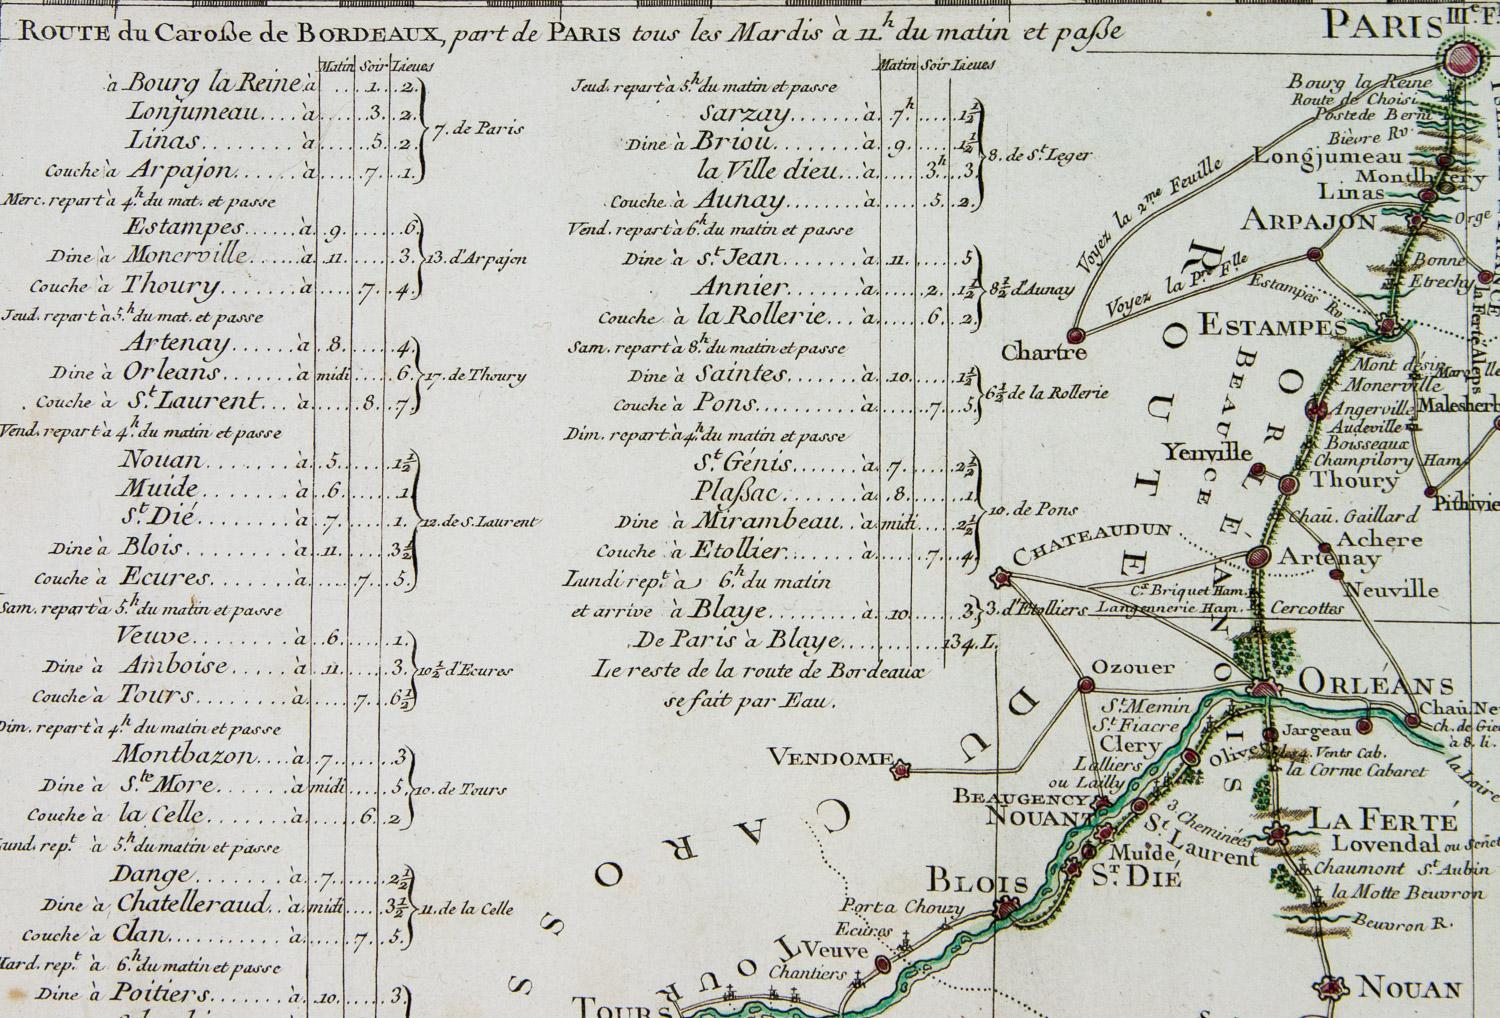 ROUTE du Caroße de BORDEAUX, part de PARIS tous les Mardis à 11.h du matin et paße
Matin Soir Lieues
à Bourg la Reine à 1. 2.
Lonjumeau à 3. 2.
Linas à 5. 2.
Couche à Arpajon à 7. 1.
7. de Paris
Merc. repart à 4.h du mat. et passe
Estampes à 9. 6.
Dine à Monerville à 11. 3.
Couche à Thoury à 7. 4.
13. d'Arpajon
Jeud. repart à 5.h du mat. et passe
Artenay à 8. 4.
Dine à Orleans à midi 6.
Couche à St. Laurent à 8. 7.
17. de Thoury
Vend. repart à 4.h du matin et passe
Nouan à 5. 1½
Muide à 6. 1
St. Dié à 7. 1.
Dine à Blois à 11. 3½
Couche à Ecures à 7. 5.
12. de S. Laurent
Sam. repart à 5.h du matin et passe
Veuve à 6. 1.
Dine à Amboise à 11. 3.
Couche à Tours à 7. 6½
10½ d'Ecures
Dim. repart à 4.h du matin et passe
Montbazon à 7. 3
Dine à Ste. More à midi 5.
Couche à la Celle à 6. 2
10. de Tours
Lund. rep.t à 5.h du matin et passe
Dange à 7. 2½
Dine à Chatelleraud à midi 3½
Couche à Clan à 7. 5.
11. de la Celle
Mard. rep.t à 6.h du matin et passe
Dine à Poitiers à 10. 3.
Matin Soir Lieues
Jeud. repart à 5.h du matin et passe
Sarzay à 7.h 1½
Dine à Briou à 9. 1½
la Ville dieu à 3.h 3.
Couche à Aunay à 5. 2.
8. de St. Leger
Vend. repart à 6.h du matin et passe
Dine à St. Jean à 11. 5
Annier à 2. 1½
Couche à la Rollerie à 6. 2.
8½ d'Aunay
Sam. repart à 8.h du matin et passe
Dine à Saintes à 10. 1½
Couche à Pons à 7. 5.
6½ de la Rollerie
Dim. repart à 4.h du matin et passe
St. Génis à 7. 2½
Plaßac à 8. 1.
Dine à Mirambeau à midi 2½
Couche à Etollier à 7. 4.
10. de Pons
Lundi rep.t à 6.h du matin
et arrive à Blaye à 10. 3.
3. d'Etolliers
De Paris à Blaye 134. L.
Le reste de la route de Bordeaux
se fait par Eau.
PARIS
IIIe. F.
Bourg la Reine
Route de Choisi
Poste de Berni
Bièvre Rv.
Longjumeau
Montlhery
Linas
ARPAJON
Orge
Voyez la 2me Feuille
Voyez la Pre. Flle
Bonne
Etrechy
la Ferté Aleps
Estampes Rv.
ESTAMPES
Chartre
Mont désir
Monerville
Angerville
Malesherb
Audeville
Boisseaux
Champilory Ham.
Yenville
Thoury
Pithivie
BEAUCE
Chaû. Gaillard
Achere
CHATEAUDUN
Artenay
Neuville
Cx. Briquet Ham.
Langennerie Ham.
Cercottes
Ozouer
ORLÉANS
St. Memin
St. Fiacre
Chaû. Ne
ch. de Gie
à 8. li.
Jargeau
Clery
Olivet
les 4. Vents Cab.
la Loire
la Corme Cabaret
Lalliers
ou Lailly
VENDOME
BEAUGENCY
NOUANT
3. Cheminées
St. Laurent
LA FERTÉ
Lovendal ou
Muide
ST. DIÉ
Chaumont St. Aubin
la Motte Beuvron
BLOIS
Beuvron R.
Porta Chouzy
Ecures
Veuve
Chantiers
NOUAN
TOURS
ROUTE DU CAROSS
ORLÉANOIS
TOUR